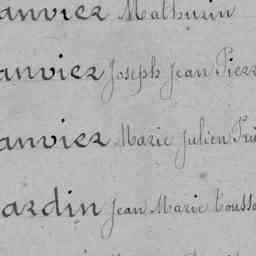 anvier Mathurin
anvier Joseph Jean Pierr
anvier Marie Julien
ardin Jean Marie Touss